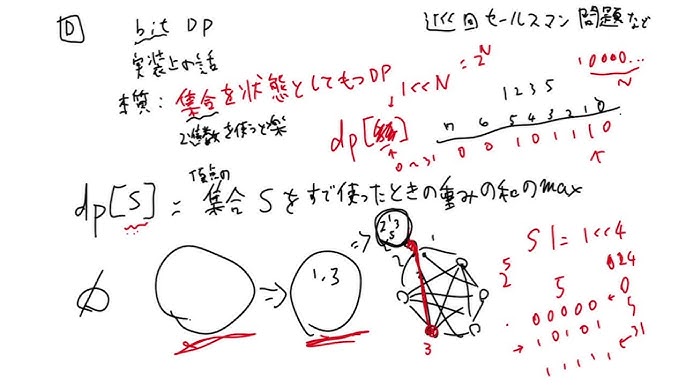 D bit DP
巡回セールスマン問題など
実装上の話
1<<N = 2^N
10000...
N
本質: 集合を状態としてもつDP
1 2 3 5
2進数を使うと楽
7 6 5 4 3 2 1 0
dp[
0~31
0 0 1 0 1 1 1 0
頂点の
dp[S] = 集合Sをすで使ったときの重みの和のmax
S |= 1<<4
1,3
2
1
3
2^5
5
0
00000
10101
11111
31